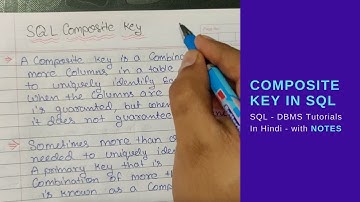 SQL Composite Key
A Composite key is a Combin
more Columns in a table
to uniquely identify
when the columns are
is guaranteed, but when
it does not guarantee
Sometimes more than o
needed to uniquely iden
A primary key that is
Combination of more t
is known as a Comp
COMPOSITE
KEY IN SQL
SQL - DBMS Tutorials
In Hindi - with NOTES